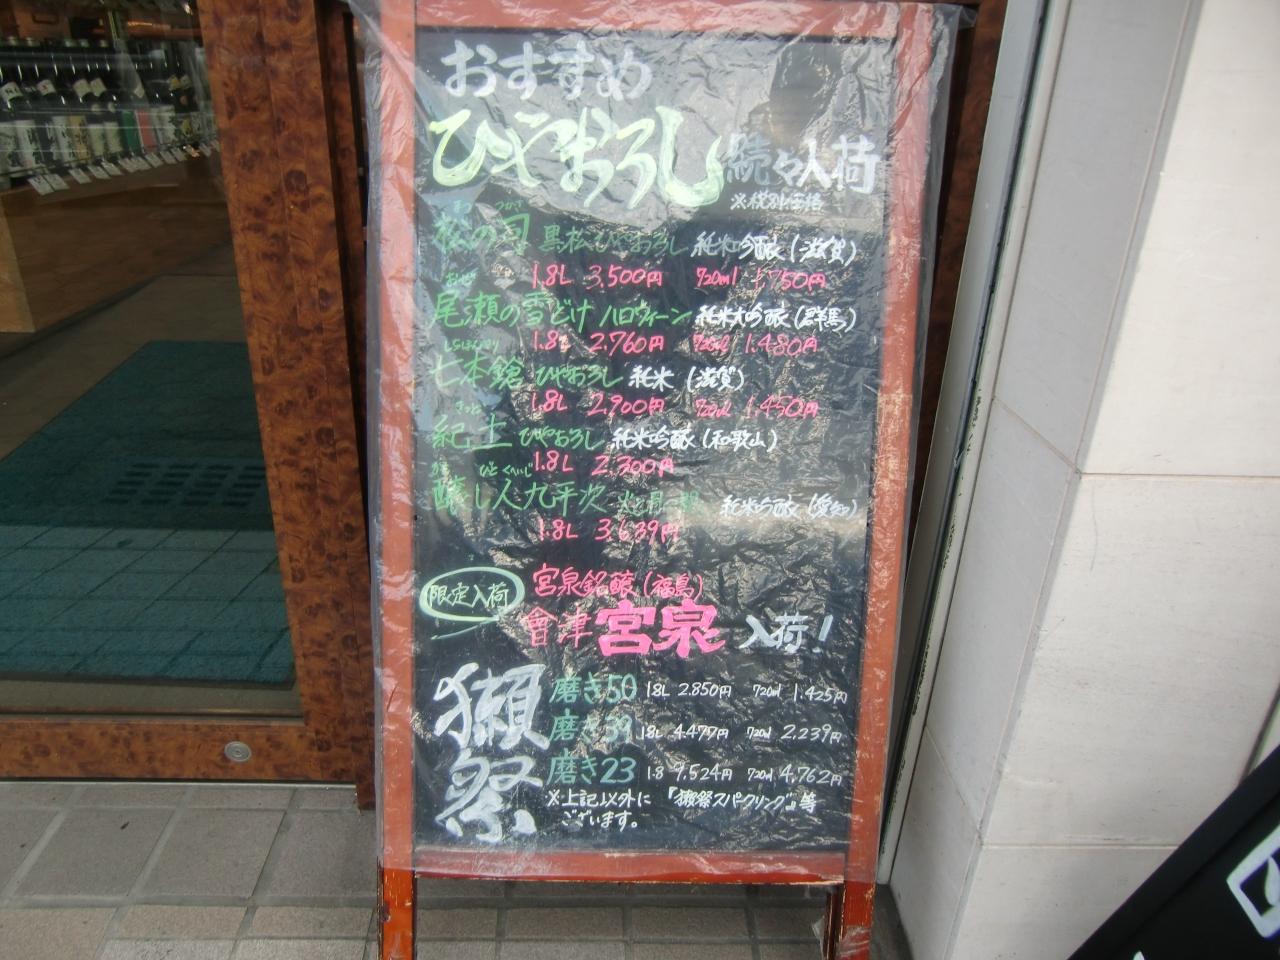 おすすめ
ひやおろし 続々入荷
※税別価格
まつ つかさ
松の司 黒松ひやおろし 純米吟醸(滋賀)
1.8L 3,500円 720ml 1,750円
おぜ
尾瀬の雪どけ ハロウィーン 純米大吟醸(群馬)
1.8L 2,760円 720ml 1,480円
しちほんやり
七本鎗 ひやおろし 純米(滋賀)
1.8L 2,900円 720ml 1,450円
きっど
紀土 ひやおろし 純米吟醸(和歌山)
1.8L 2,300円
かも びと くへいじ
醸し人九平次 火と月の間 純米吟醸(愛知)
1.8L 3,639円
限定入荷 宮泉銘醸(福島)
會津宮泉 入荷!
獺祭
磨き50 1.8L 2,850円 720ml 1,425円
磨き39 1.8L 4,477円 720ml 2,239円
磨き23 1.8 9,524円 720ml 4,762円
※上記以外に「獺祭スパークリング」等
ございます。